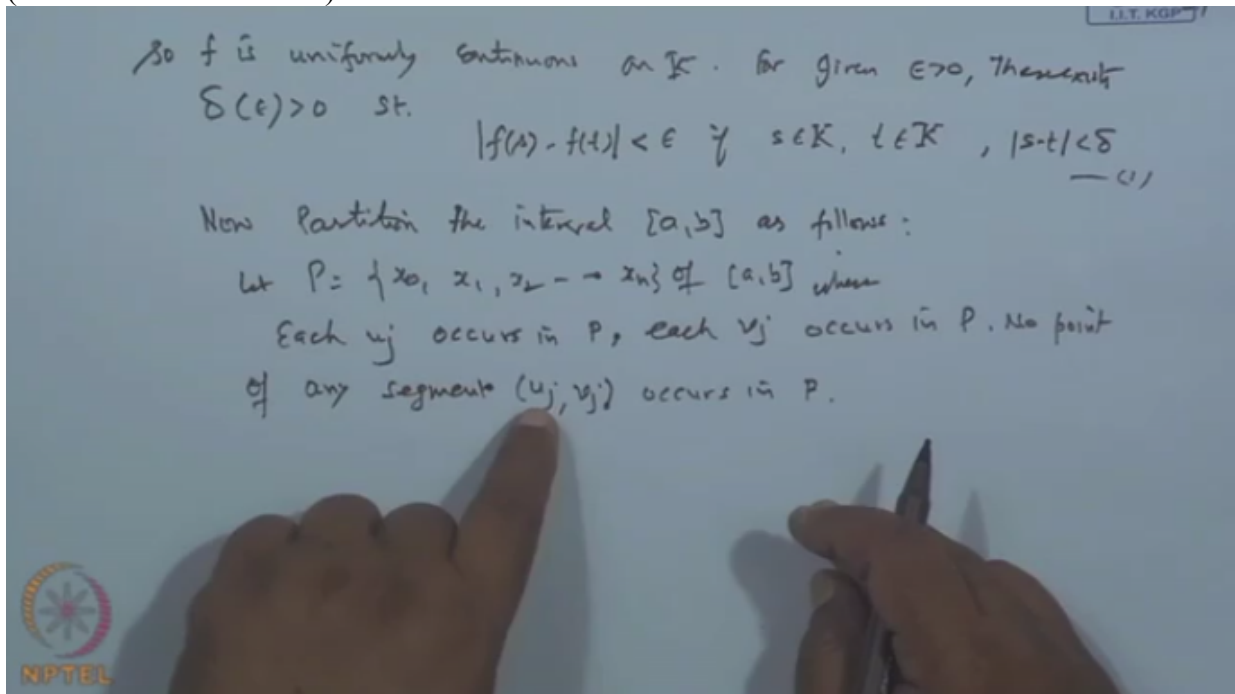 I.I.T. KGP
So f is uniformly continuous on K. For given ε>0, There exists
δ(ε)>0 st.
|f(s) - f(t)| < ε if s∈K, t∈K, |s-t|<δ
— (1)
Now Partition the interval [a,b] as follows:
Let P = {x0, x1, x2 - - → xn} of [a,b] where
Each uj occurs in P, each vj occurs in P. No point
of any segment (uj, vj) occurs in P.
NPTEL